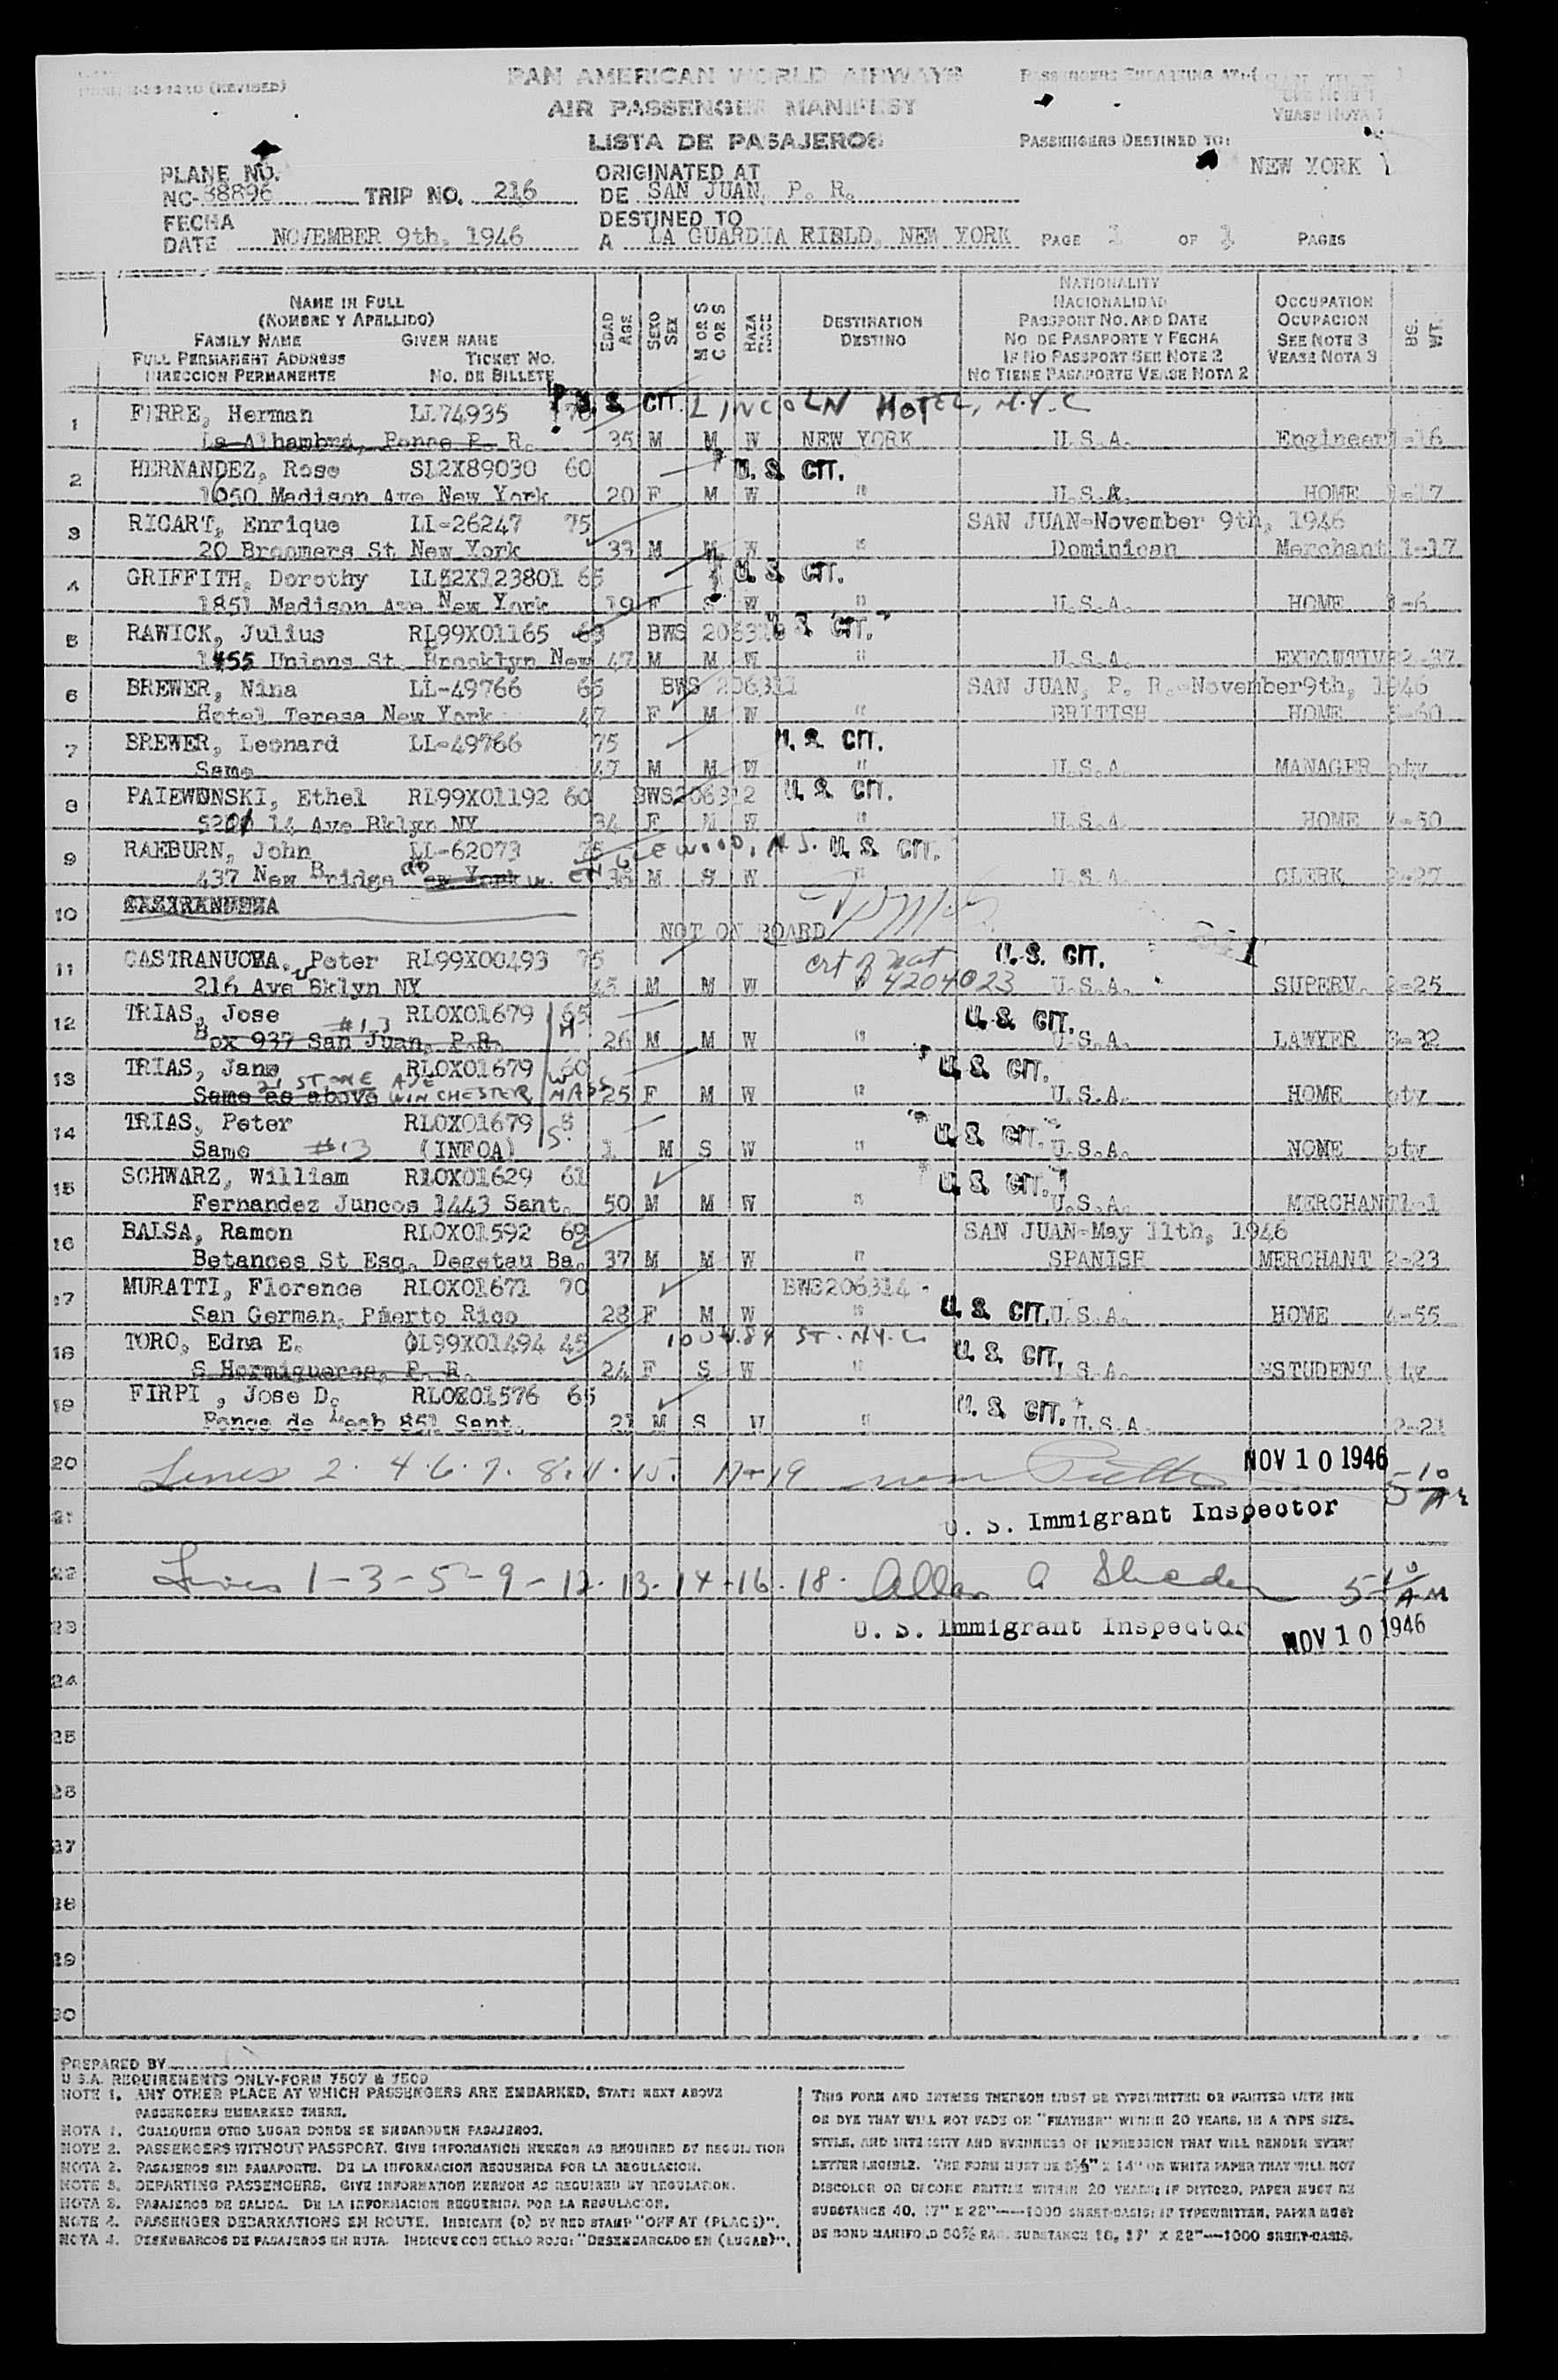 (REVISED)
PAN AMERICAN WORLD AIRWAYS
AIR PASSENGER MANIFEST
LISTA DE PASAJEROS
PASSENGERS EMBARKING AT:
VEASE NOTA 1
PASSENGERS DESTINED TO:
NEW YORK
PLANE NO.
NC-88896 TRIP NO. 216
ORIGINATED AT
DE SAN JUAN, P. R.
FECHA
DATE NOVEMBER 9th, 1946
DESTINED TO
A LA GUARDIA FIELD, NEW YORK PAGE 1 OF 1 PAGES
NAME IN FULL
(NOMBRE Y APELLIDO)
FAMILY NAME GIVEN NAME
FULL PERMANENT ADDRESS TICKET NO.
DIRECCION PERMANENTE NO. DE BILLETE
EDAD
AGE
SEXO
SEX
M OR S
C OR S
RAZA
RACE
DESTINATION
DESTINO
NATIONALITY
NACIONALIDAD
PASSPORT NO. AND DATE
NO DE PASAPORTE Y FECHA
IF NO PASSPORT SEE NOTE 2
NO TIENE PASAPORTE VEASE NOTA 2
OCCUPATION
OCUPACION
SEE NOTE 3
VEASE NOTA 3
1 FERRE, Herman LL74935 70 U. S. CIT. LINCOLN HOTEL, N.Y.C
La Alhambra, Ponce P. R. 35 M M W NEW YORK U.S.A. Engineer 1-16
2 HERNANDEZ, Rose SL2X89030 60 U. S. CIT.
1650 Madison Ave New York 20 F M W " U.S.A. HOME 1-17
3 RICART, Enrique LL-26247 75 SAN JUAN-November 9th, 1946
20 Broomers St New York 33 M M W " Dominican Merchant 1-17
4 GRIFFITH, Dorothy LL52X123801 65 U. S. CIT.
1851 Madison Ave New York 19 F S W " U.S.A. HOME 1-6
5 RAWICK, Julius RL99X01165 63 BWS U. S. CIT.
1455 Unions St. Brooklyn New 47 M M W " U.S.A. EXECUTIVE 2-37
6 BREWER, Nina LL-49766 65 BWS 206311 SAN JUAN, P. R.-November9th, 1946
Hotel Teresa New York 47 F M W " BRITISH HOME 3-60
7 BREWER, Leonard LL-49766 75 U. S. CIT.
Same 47 M M W " U.S.A. MANAGER pty
8 PAIEWONSKI, Ethel RL99X01192 60 BWS206312 U. S. CIT.
5201 14 Ave Bklyn NY 34 F M W " U.S.A. HOME 4-50
9 RAEBURN, John LL-62073 75 ENGLEWOOD, N.J. U. S. CIT.
437 New Bridge RD New York W. M S W " U.S.A. CLERK 2-27
10
NOT ON BOARD
11 CASTRANUOVA, Peter RL99X00493 75 crt of nat U. S. CIT.
216 Ave U Bklyn NY 45 M M W " 4204023 U.S.A. SUPERV. 2-25
12 TRIAS, Jose RLOX01679 65 U. S. CIT.
Box 937 San Juan, P.R. #13 H 26 M M W " U.S.A. LAWYER 3-32
13 TRIAS, Jane RLOX01679 60 U. S. CIT.
Same as above 21 STONE AVE WINCHESTER MASS W 25 F M W " U.S.A. HOME pty
14 TRIAS, Peter RLOX01679 8 U. S. CIT.
Same #13 (INFOA) S. 1 M S W " U.S.A. NONE pty
15 SCHWARZ, William RLOX01629 61 U. S. CIT.
Fernandez Juncos 1443 Sant. 50 M M W " U.S.A. MERCHANT 1-1
16 BALSA, Ramon RLOX01592 69 SAN JUAN-May 11th, 1946
Betances St Esq. Degetau Ba. 37 M M W " SPANISH MERCHANT 2-23
17 MURATTI, Florence RLOX01671 70 BWS206314
San German, Puerto Rico 28 F M W " U. S. CIT. U.S.A. HOME 4-55
18 TORO, Edna E. OL99X01494 45 100 W.84 ST. N.Y.C U. S. CIT.
S Hormigueros, P. R. 24 F S W " U.S.A. STUDENT pty
19 FIRPI , Jose D. RLOX01576 65 U. S. CIT.
Ponce de Leob 851 Sant. 21 M S W " U.S.A. 2-21
20 Lines 2. 4. 6. 7. 8. 11. 15. 17+19 NOV 10 1946 5-10 AM
21 U. S. Immigrant Inspector
22 Lines 1-3-5-9-12-13-14-16-18. Allen A 5 10 AM
23 U. S. Immigrant Inspector NOV 10 1946
24
25
26
27
28
29
30
PREPARED BY
U.S.A. REQUIREMENTS ONLY-FORM 7507 & 7509
NOTE 1. ANY OTHER PLACE AT WHICH PASSENGERS ARE EMBARKED, STATE NEXT ABOVE
PASSENGERS EMBARKED THERE.
NOTA 1. CUALQUIER OTRO LUGAR DONDE SE EMBARQUEN PASAJEROS.
NOTE 2. PASSENGERS WITHOUT PASSPORT. GIVE INFORMATION HEREON AS REQUIRED BY REGULATION
NOTA 2. PASAJEROS SIN PASAPORTE. DE LA INFORMACION REQUERIDA POR LA REGULACION.
NOTE 3. DEPARTING PASSENGERS. GIVE INFORMATION HEREON AS REQUIRED BY REGULATION.
NOTA 3. PASAJEROS DE SALIDA. DE LA INFORMACION REQUERIDA POR LA REGULACION.
NOTE 4. PASSENGER DEBARKATIONS EN ROUTE. INDICATE (D) BY RED STAMP "OFF AT (PLACE)".
NOTA 4. DESEMBARCOS DE PASAJEROS EN RUTA. INDIQUE CON SELLO ROJO: "DESEMBARCADO EN (LUGAR)".
THIS FORM AND ENTRIES THEREON MUST BE TYPEWRITTEN OR PRINTED WITH INK
OR DYE THAT WILL NOT FADE OR "FEATHER" WITHIN 20 YEARS, IN A TYPE SIZE,
STYLE, AND INTENSITY AND EVENNESS OF IMPRESSION THAT WILL RENDER EVERY
LETTER LEGIBLE. THE FORM MUST BE 8½" X 14" ON WHITE PAPER THAT WILL NOT
DISCOLOR OR BECOME BRITTLE WITHIN 20 YEARS; IF DITTOED, PAPER MUST BE
SUBSTANCE 40, 17" X 22"—1000 SHEET-BASIS; IF TYPEWRITTEN, PAPER MUST
BE BOND MANIFOLD 50% RAG, SUBSTANCE 16, 17" X 22"—1000 SHEET-BASIS.